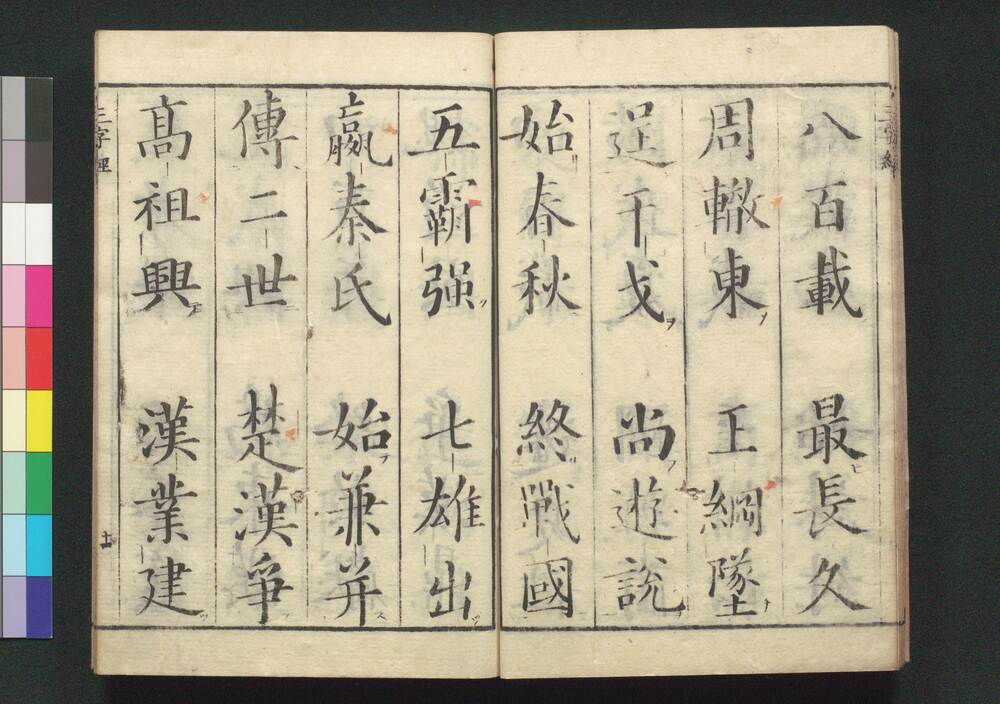 八百載 最長久
周轍東 王綱墜
逞干戈 尚遊說
始春秋 終戰國
五霸强 七雄出
嬴秦氏 始兼并
傳二世 楚漢爭
高祖興 漢業建
三字經